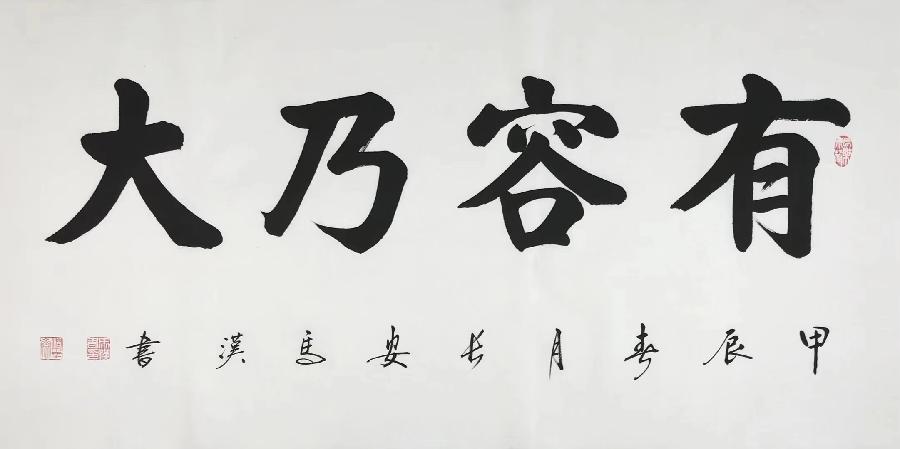 有容乃大
甲辰春月长安马汉书